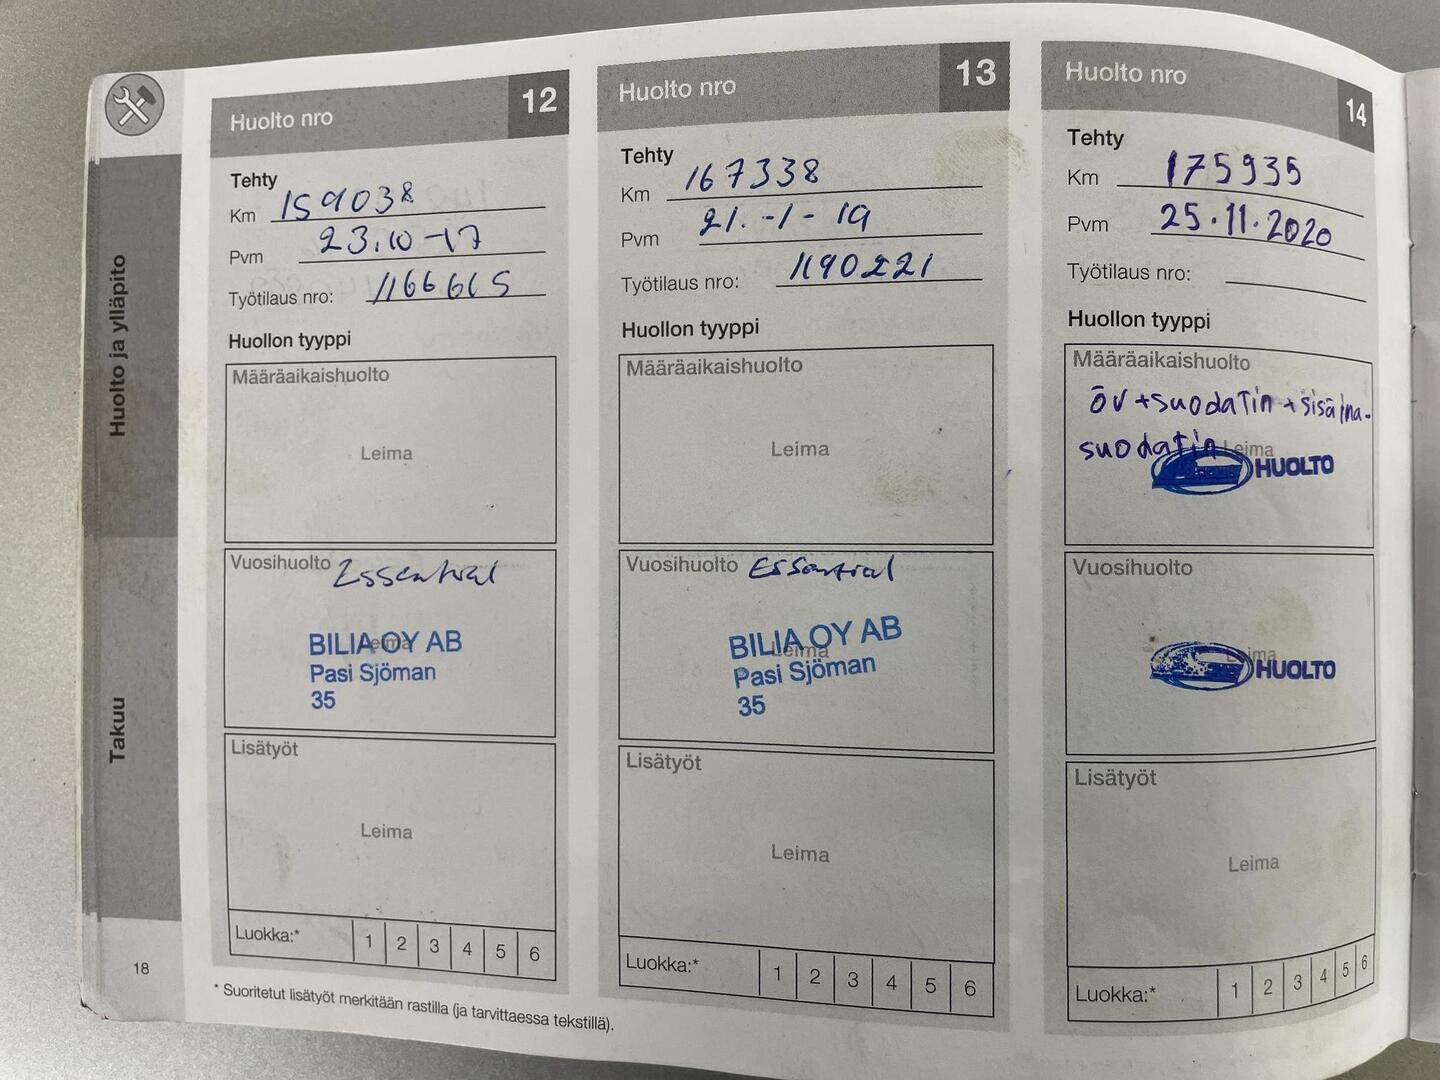 Huolto ja ylläpito
Takuu
18
Huolto nro 12
Tehty
Km 159038
Pvm 23.10-17
Työtilaus nro: 1166665
Huollon tyyppi
Määräaikaishuolto
Leima
Vuosihuolto Essential
Leima
BILIA OY AB
Pasi Sjöman
35
Lisätyöt
Leima
Luokka:* 1 2 3 4 5 6
Huolto nro 13
Tehty
Km 167338
Pvm 21.-1-19
Työtilaus nro: 1190221
Huollon tyyppi
Määräaikaishuolto
Leima
Vuosihuolto Essential
Leima
BILIA OY AB
Pasi Sjöman
35
Lisätyöt
Leima
Luokka:* 1 2 3 4 5 6
Huolto nro 14
Tehty
Km 175935
Pvm 25.11.2020
Työtilaus nro:
Huollon tyyppi
Määräaikaishuolto
öv+suodatin+sisäilma-
suodatin Leima
HUOLTO
Vuosihuolto
Leima
HUOLTO
Lisätyöt
Leima
Luokka:* 1 2 3 4 5 6
* Suoritetut lisätyöt merkitään rastilla (ja tarvittaessa tekstillä).